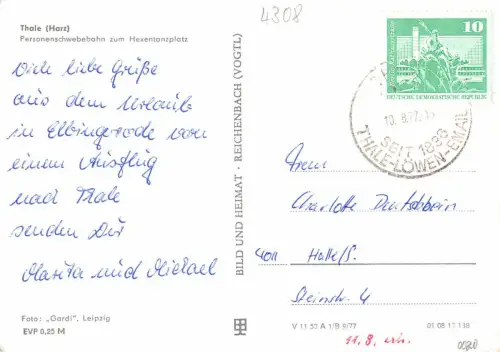 4308
Thale (Harz)
Personenschwebebahn zum Hexentanzplatz
Viele liebe Grüße
aus dem Urlaub
in Elbingerode von
einem Ausflug
nach Thale
senden Dir
Marita und Michael
Foto: „Gardi", Leipzig
EVP 0,25 M
BILD UND HEIMAT · REICHENBACH (VOGTL)
10
DEUTSCHE DEMOKRATISCHE REPUBLIK
10.8.77
SEIT 1835
THALE-LÖWEN-EMAIL
Charlotte Deutschbein
401 Halle/S.
Steinstr. 4
V 11 50 A 1/B 9/77
01 08 13 138
11.8. erh.